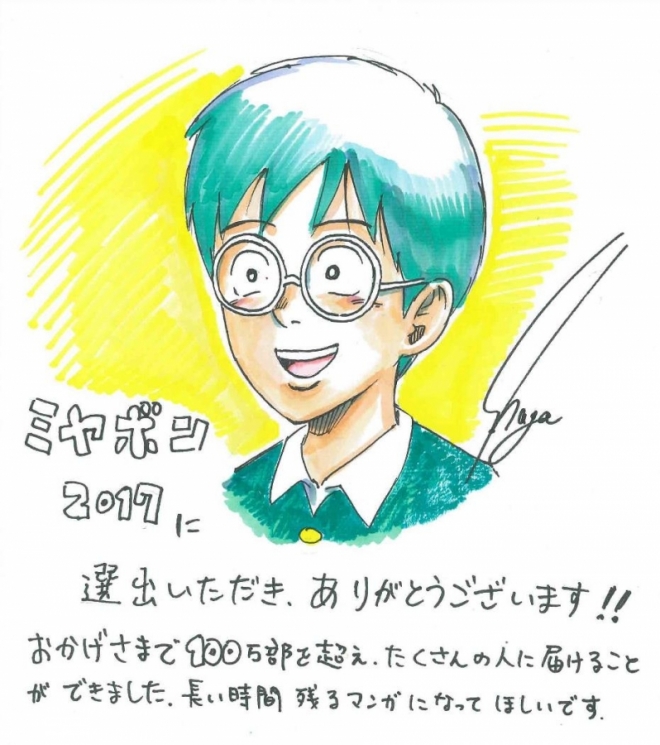 ミヤボン
2017に
naga
選出いただき、ありがとうございます!!
おかげさまで100万部を超え、たくさんの人に届けること
ができました。長い時間 残るマンガになってほしいです。